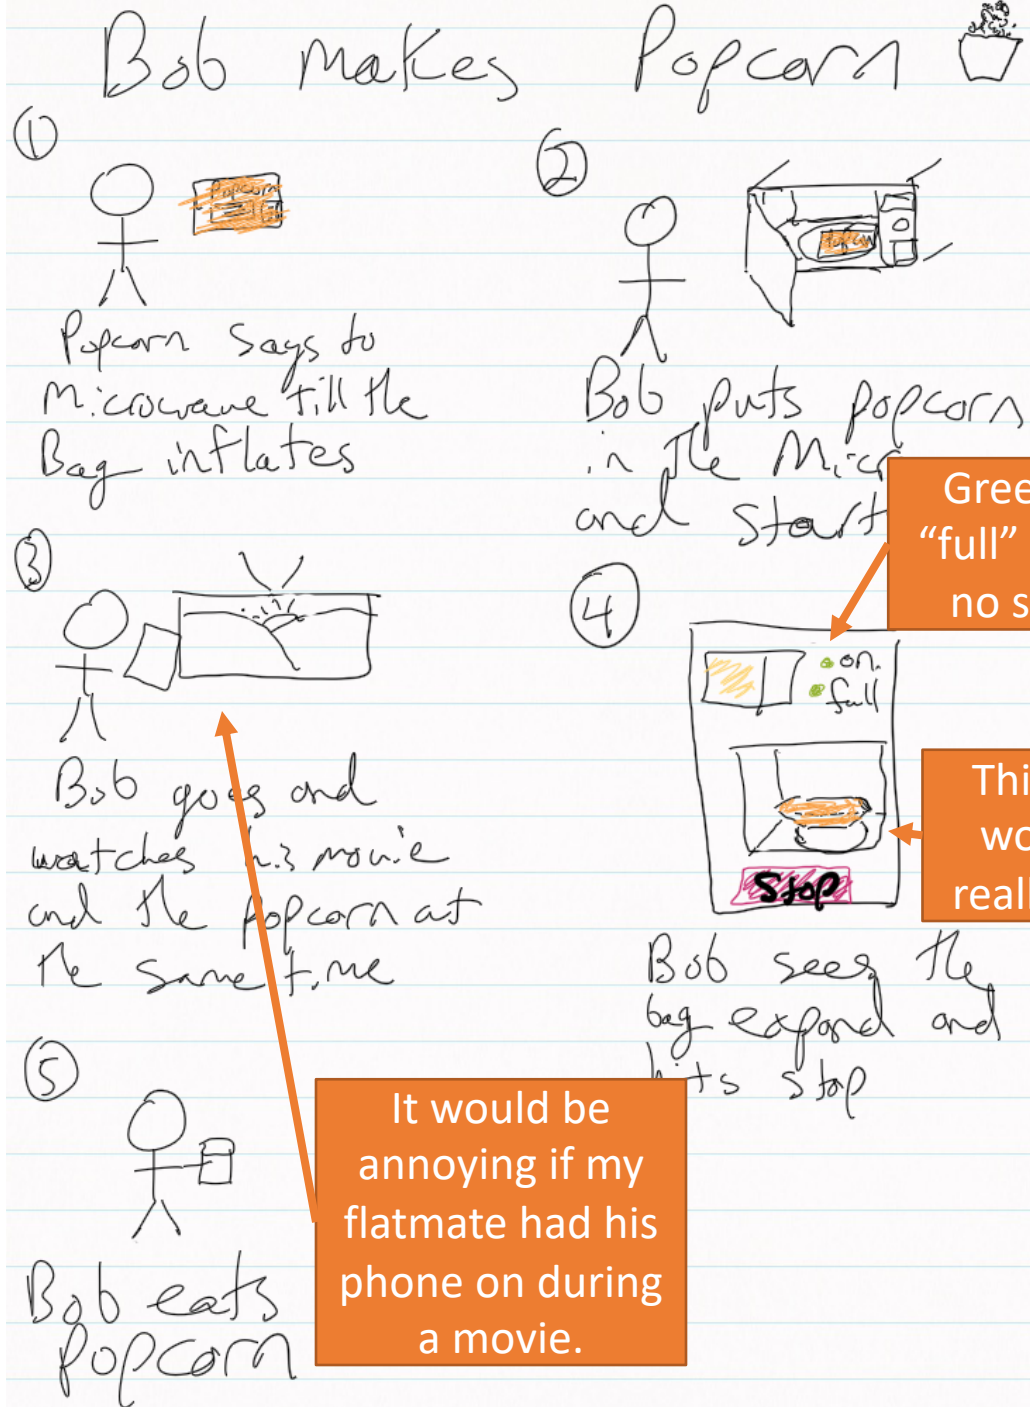 Bob makes Popcorn
1
Popcorn
Popcorn Says to
Microwave till the
Bag inflates
2
Popcorn
Bob puts popcorn
in the Micr
and start
3
Bob goes and
watches his movie
and the popcorn at
the same time
4
on.
full
Stop
Bob sees the
bag expand and
hits stop
5
Bob eats
popcorn
Gree
"full"
no s
Thi
wo
reall
It would be
annoying if my
flatmate had his
phone on during
a movie.